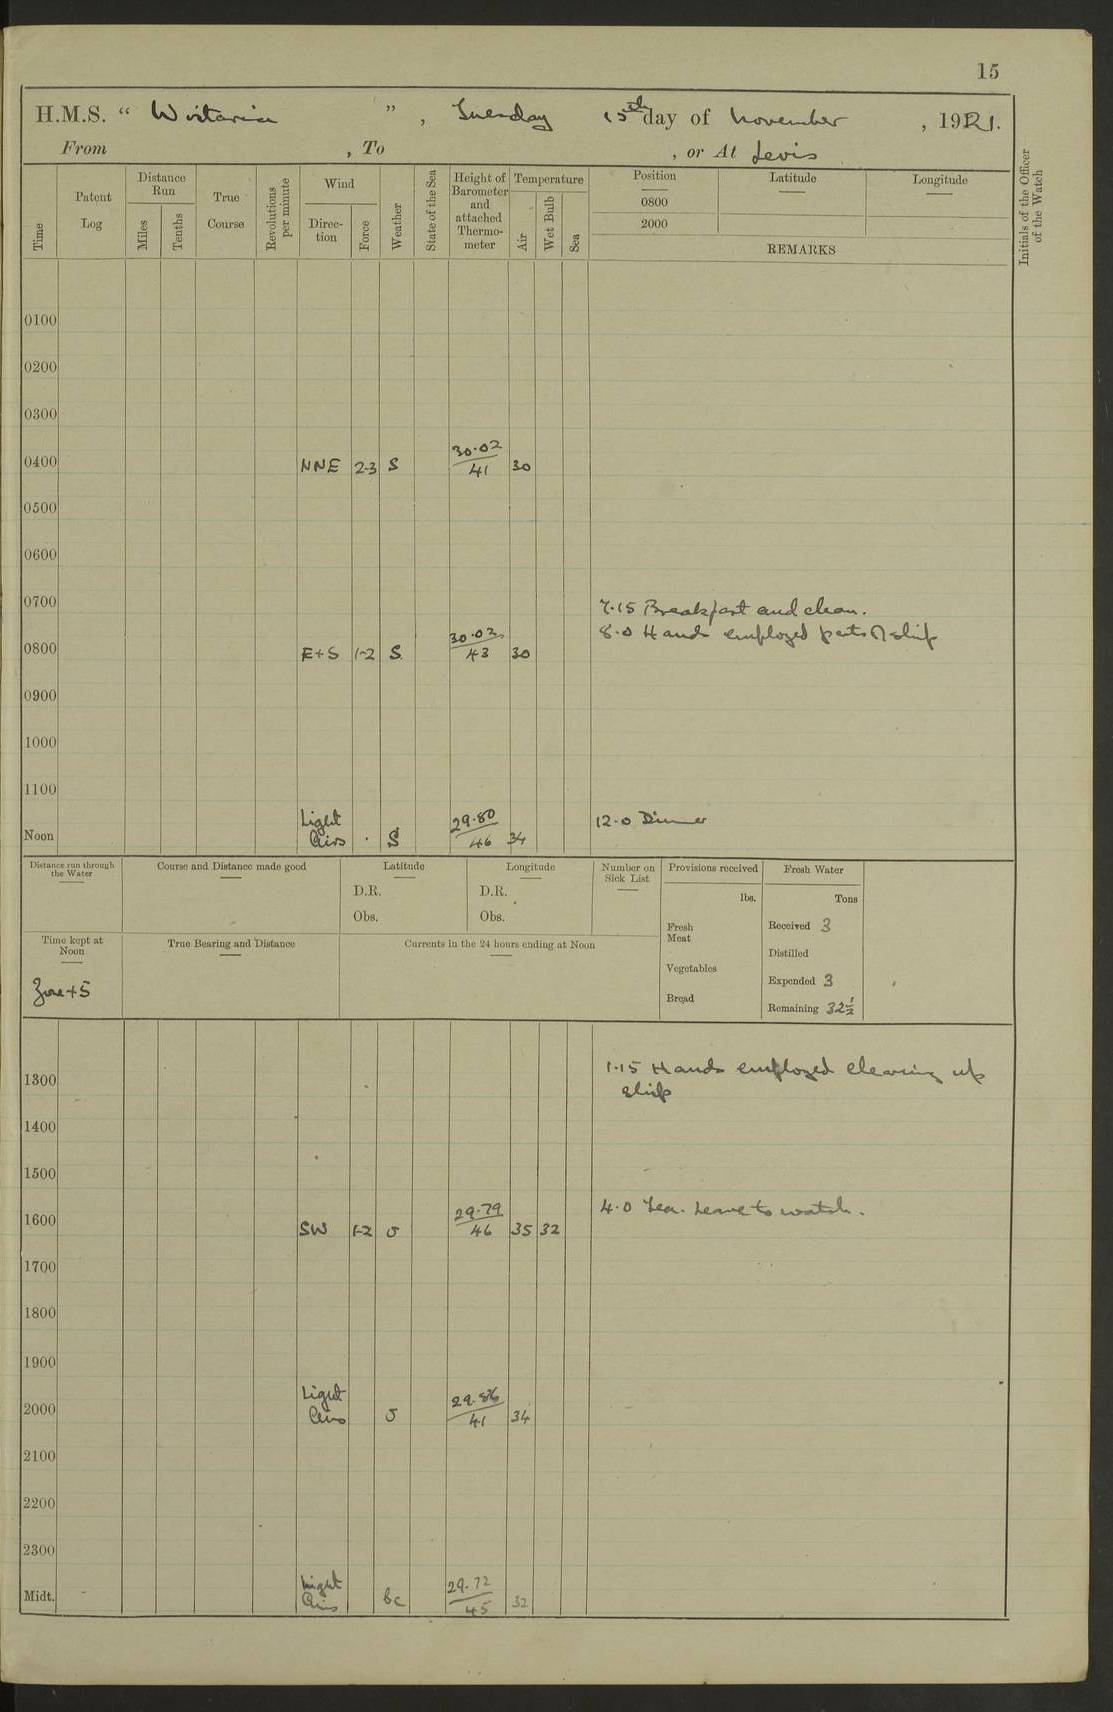 15
H.M.S. " Wistaria " , Tuesday 15th day of November , 1921.
From , To , or At Levis
Time
Patent Log
Distance Run
Miles
Tenths
True Course
Revolutions per minute
Wind
Direction
Force
Weather
State of the Sea
Height of Barometer and attached Thermo-meter
Temperature
Air
Wet Bulb
Sea
Position
0800
2000
Latitude
Longitude
REMARKS
Initials of the Officer of the Watch
0100
0200
0300
0400 NNE 2-3 S 30.02 41 30
0500
0600
0700 7.15 Breakfast and clean.
8.0 Hands employed parts of ship
0800 E+S 1-2 S. 30.03 43 30
0900
1000
1100
Noon Light Airs . S 29.80 46 34 12.0 Dinner
Distance run through the Water
Course and Distance made good
Latitude
D.R.
Obs.
Longitude
D.R.
Obs.
Number on Sick List
Provisions received
lbs.
Fresh Meat
Vegetables
Bread
Fresh Water
Tons
Received 3
Distilled
Expended 3
Remaining 32½
Time kept at Noon
Zone +5
True Bearing and Distance
Currents in the 24 hours ending at Noon
1.15 Hands employed clearing up
1300 ship
1400
1500
4.0 Tea. Leave to watch.
1600 SW 1-2 o 29.79 46 35 32
1700
1800
1900
2000 Light Airs o 29.86 41 34
2100
2200
2300
Midt. Light Airs bc 29.72 45 32